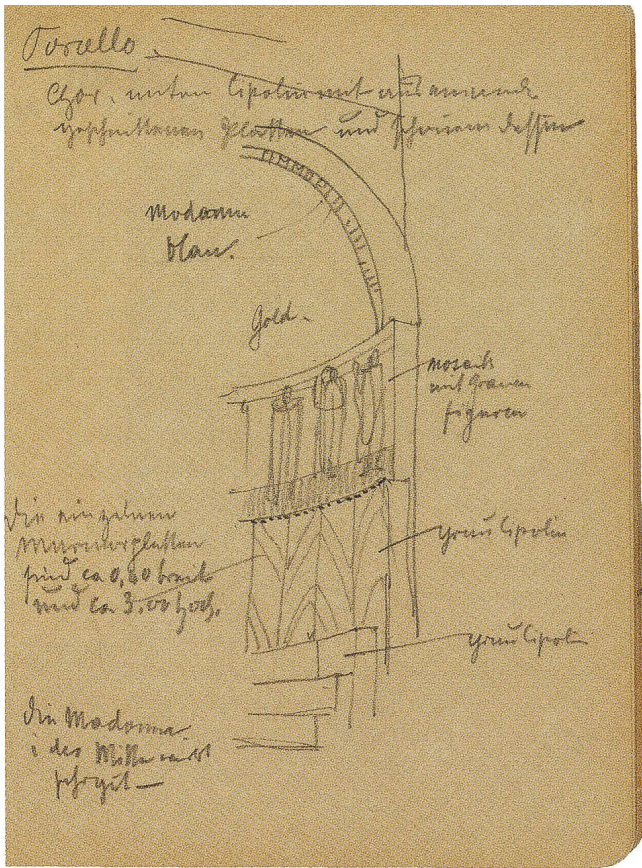 Torcello.
Chor. unten Cipolin mit auseinande
geschnittenen Platten und
Madonna
blau.
Gold.
Mosaik
mit Grauen
figuren
Die einzelnen
Marmorplatten
sind ca 0,80 breit
und ca 3.00 hoch.
grau Cipolin
grau Cipolin
die Madonna
i der Mitte wirkt
sehr gut